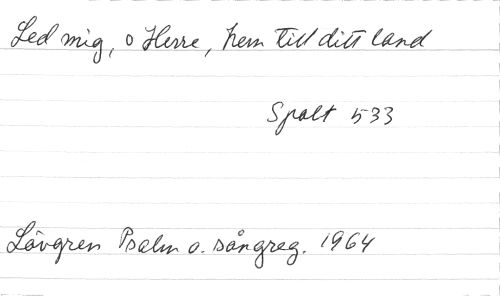 Led mig, o Herre, hem till ditt land
Spalt 533
Lövgren Psalm o. sångreg. 1964